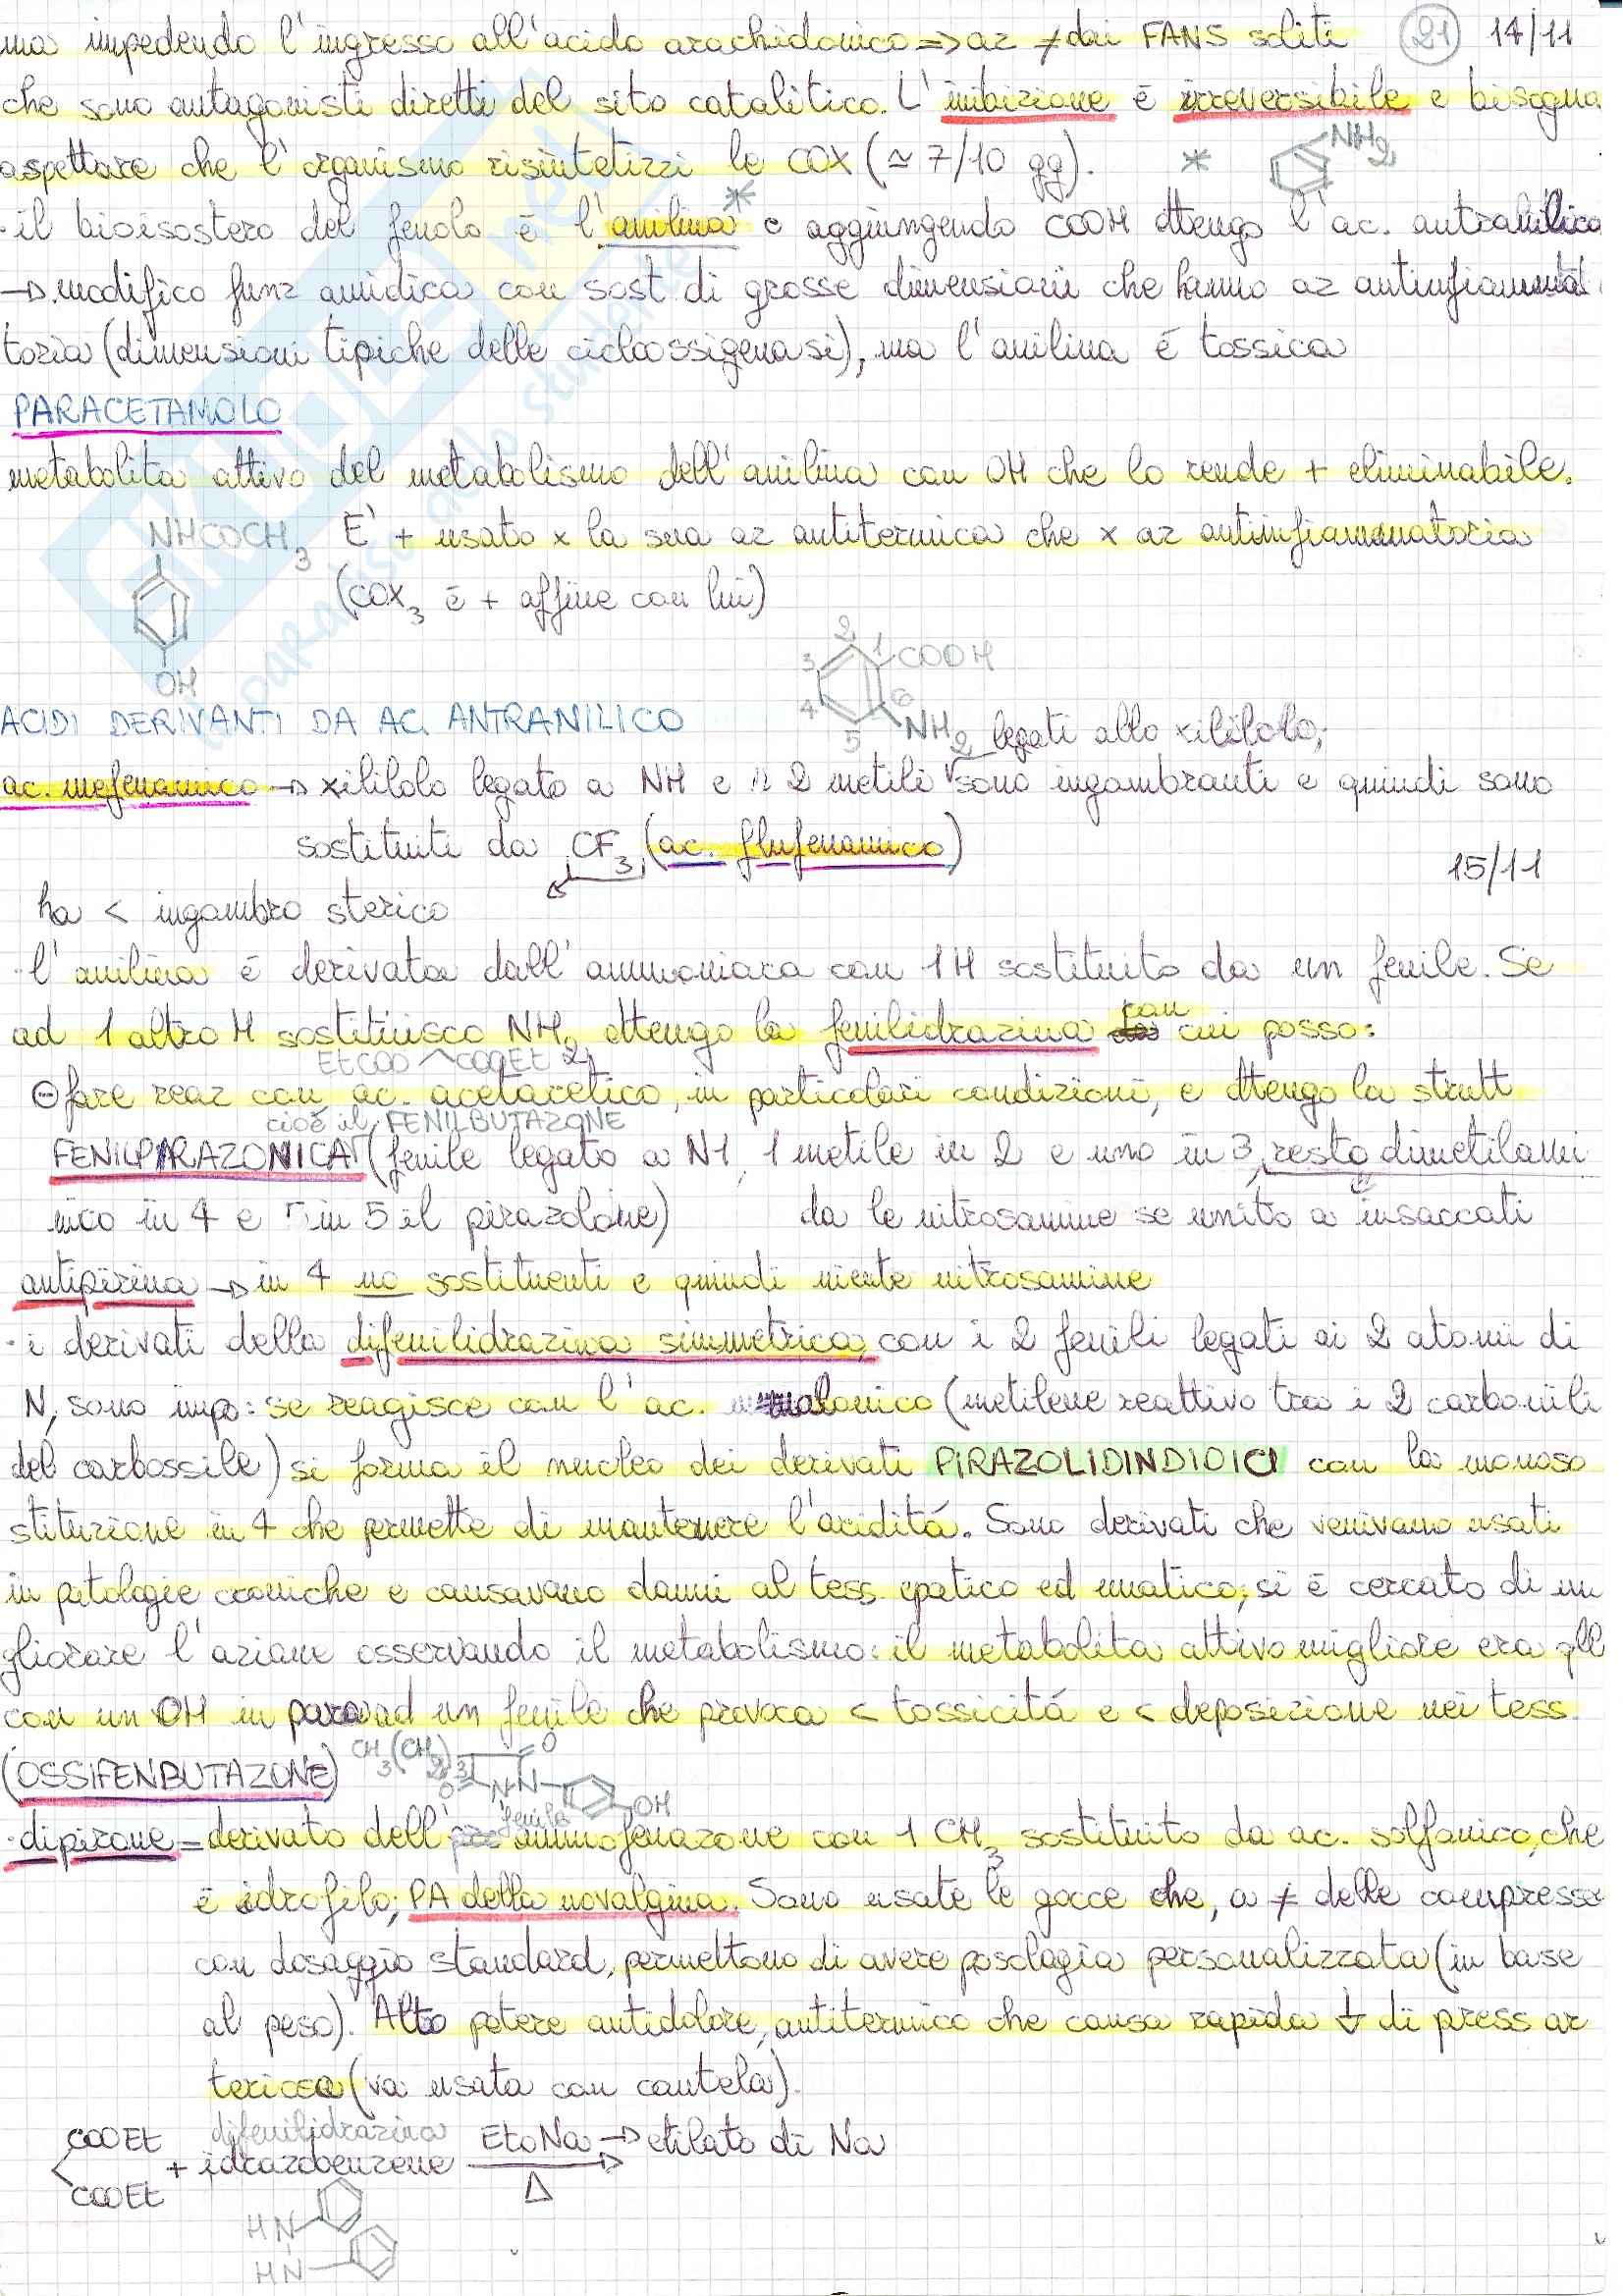 ma impedendo l'ingresso all'acido arachidonico => az ≠ dai FANS soliti (21) 14/11
che sono antagonisti diretti del sito catalitico. L'inibizione è irreversibile e bisogna
aspettare che l'organismo risintetizzi le COX (≃ 7/10 gg). * NH2
· il bioisostero del fenolo è l'anilina* e aggiungendo COOH ottengo l'ac. antranilico
→ modifico funz amidica con sost di grosse dimensioni che hanno az antinfiamma
toria (dimensioni tipiche delle cicloossigenasi), ma l'anilina è tossica
PARACETAMOLO
metabolita attivo del metabolismo dell'anilina con OH che lo rende + eliminabile.
NHCOCH3 E' + usato x la sua az antitermica che x az antinfiammatoria
(COX3 è + affine con lui)
OH
2 1 COOH
3 6
4 5 NH2
ACIDI DERIVANTI DA AC. ANTRANILICO
legati allo xililolo;
ac. mefenamico → xililolo legato a NH e i 2 metili sono ingombranti e quindi sono
sostituiti da CF3 (ac. flufenamico)
15/11
ha < ingombro sterico
· l'anilina è derivata dall'ammoniaca con 1H sostituito da un fenile. Se
ad 1 altro H sostituisco NH2 ottengo la fenilidrazina con cui posso:
EtCOO COOEt
⊖ fare reaz con ac. acetacetico, in particolari condizioni, e ottengo la strutt
cioè il FENILBUTAZONE
FENILPIRAZONICA (fenile legato a N1, 1 metile in 2 e uno in 3, resto dimetilami
nico in 4 e in 5 il pirazolone) da le nitrosamine se unito a insaccati
antipirina → in 4 no sostituenti e quindi niente nitrosamine
· i derivati della difenilidrazina simmetrica, con i 2 fenili legati ai 2 atomi di
N, sono imp: se reagisce con l'ac. malonico (metilene reattivo tra i 2 carbonili
del carbossile) si forma il nucleo dei derivati PIRAZOLIDINDIOICI con la monoso
stituzione in 4 che permette di mantenere l'acidità. Sono derivati che venivano usati
in patologie croniche e causavano danni al tess. epatico ed ematico; si è cercato di mi
gliorare l'azione osservando il metabolismo: il metabolita attivo migliore era qll
con un OH in para ad un fenile che provoca < tossicità e < deposizione nei tess.
(OSSIFENBUTAZONE) CH3(CH2)3 O
O N N OH
fenile
· dipirone = derivato dell' amminofenazone con 1 CH3 sostituito da ac. solfonico, che
è idrofilo; PA della novalgina. Sono usate le gocce che, a ≠ delle compresse
con dosaggio standard, permettono di avere posologia personalizzata (in base
al peso). Alto potere antidolore, antitermico che causa rapida ↓ di press ar
teriosa (va usata con cautela).
COOEt difenilidrazina EtoNa → etilato di Na
+ idrazobenzene
COOEt Δ
HN
HN